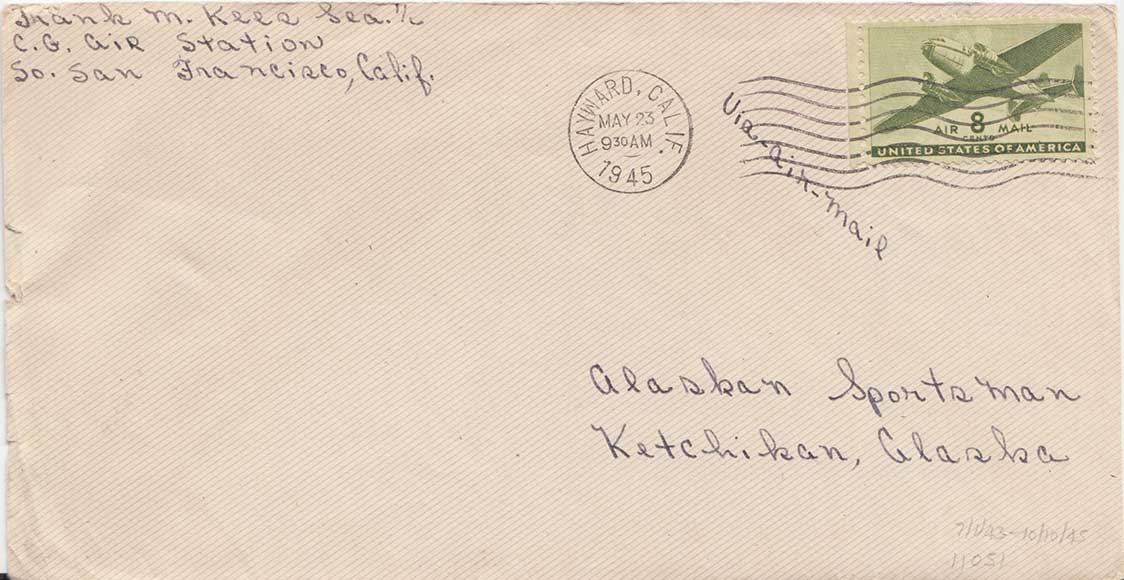 Frank M. Kees Sea. 1/c
C.G. Air Station
So. San Francisco, Calif.
HAYWARD, CALIF.
MAY 23
9 30 AM
1945
AIR 8 MAIL
CENTS
UNITED STATES OF AMERICA
Via-Air-Mail
Alaskan Sportsman
Ketchikan, Alaska
7/1/43-10/10/45
11051